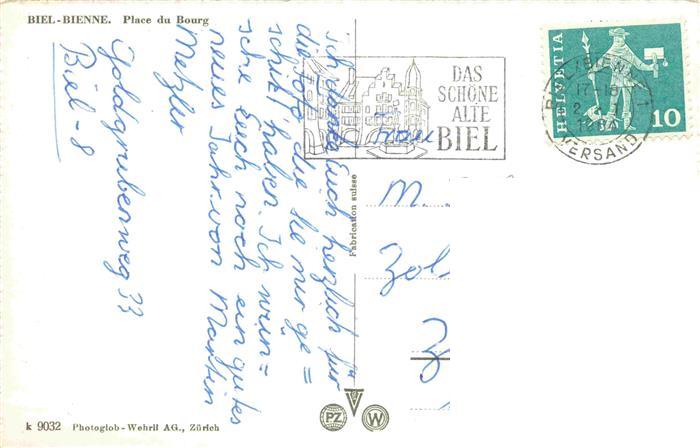 BIEL-BIENNE. Place du Bourg
ich danke Euch herzlich für
die Foto die Sie mir ge=
schikt haben. Ich wün=
sche Euch noch ein gutes
neues Jahr. von Martin
Metzler
Goldgrubenweg 33
Biel-8
DAS
SCHÖNE
ALTE
BIEL
HELVETIA
10
VERSAND
Frau
M.
Zol
Z
Fabrication suisse
PZ
W
k 9032 Photoglob-Wehrli AG., Zürich